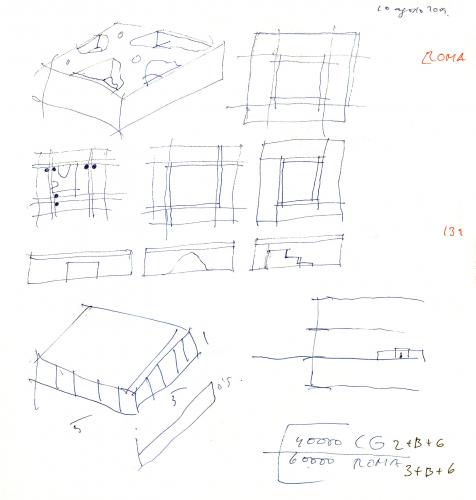 20 agosto 2009
ROMA
131
1
5
5
0.5
40000 CG 2+B+6
60000 ROMA 3+B+6